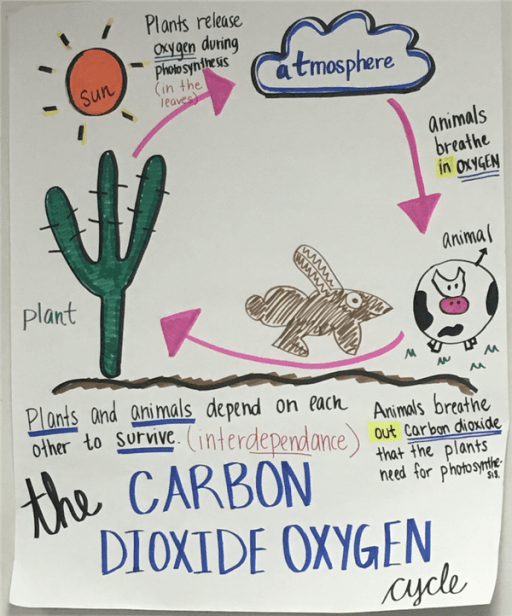 Plants release
oxygen during
photosynthesis
(in the
leaves)
sun
atmosphere
animals
breathe
in OXYGEN
animal
plant
Plants and animals depend on each
other to survive. (interdependance)
Animals breathe
out carbon dioxide
that the plants
need for photosynthe-
sis.
the CARBON
DIOXIDE OXYGEN
cycle